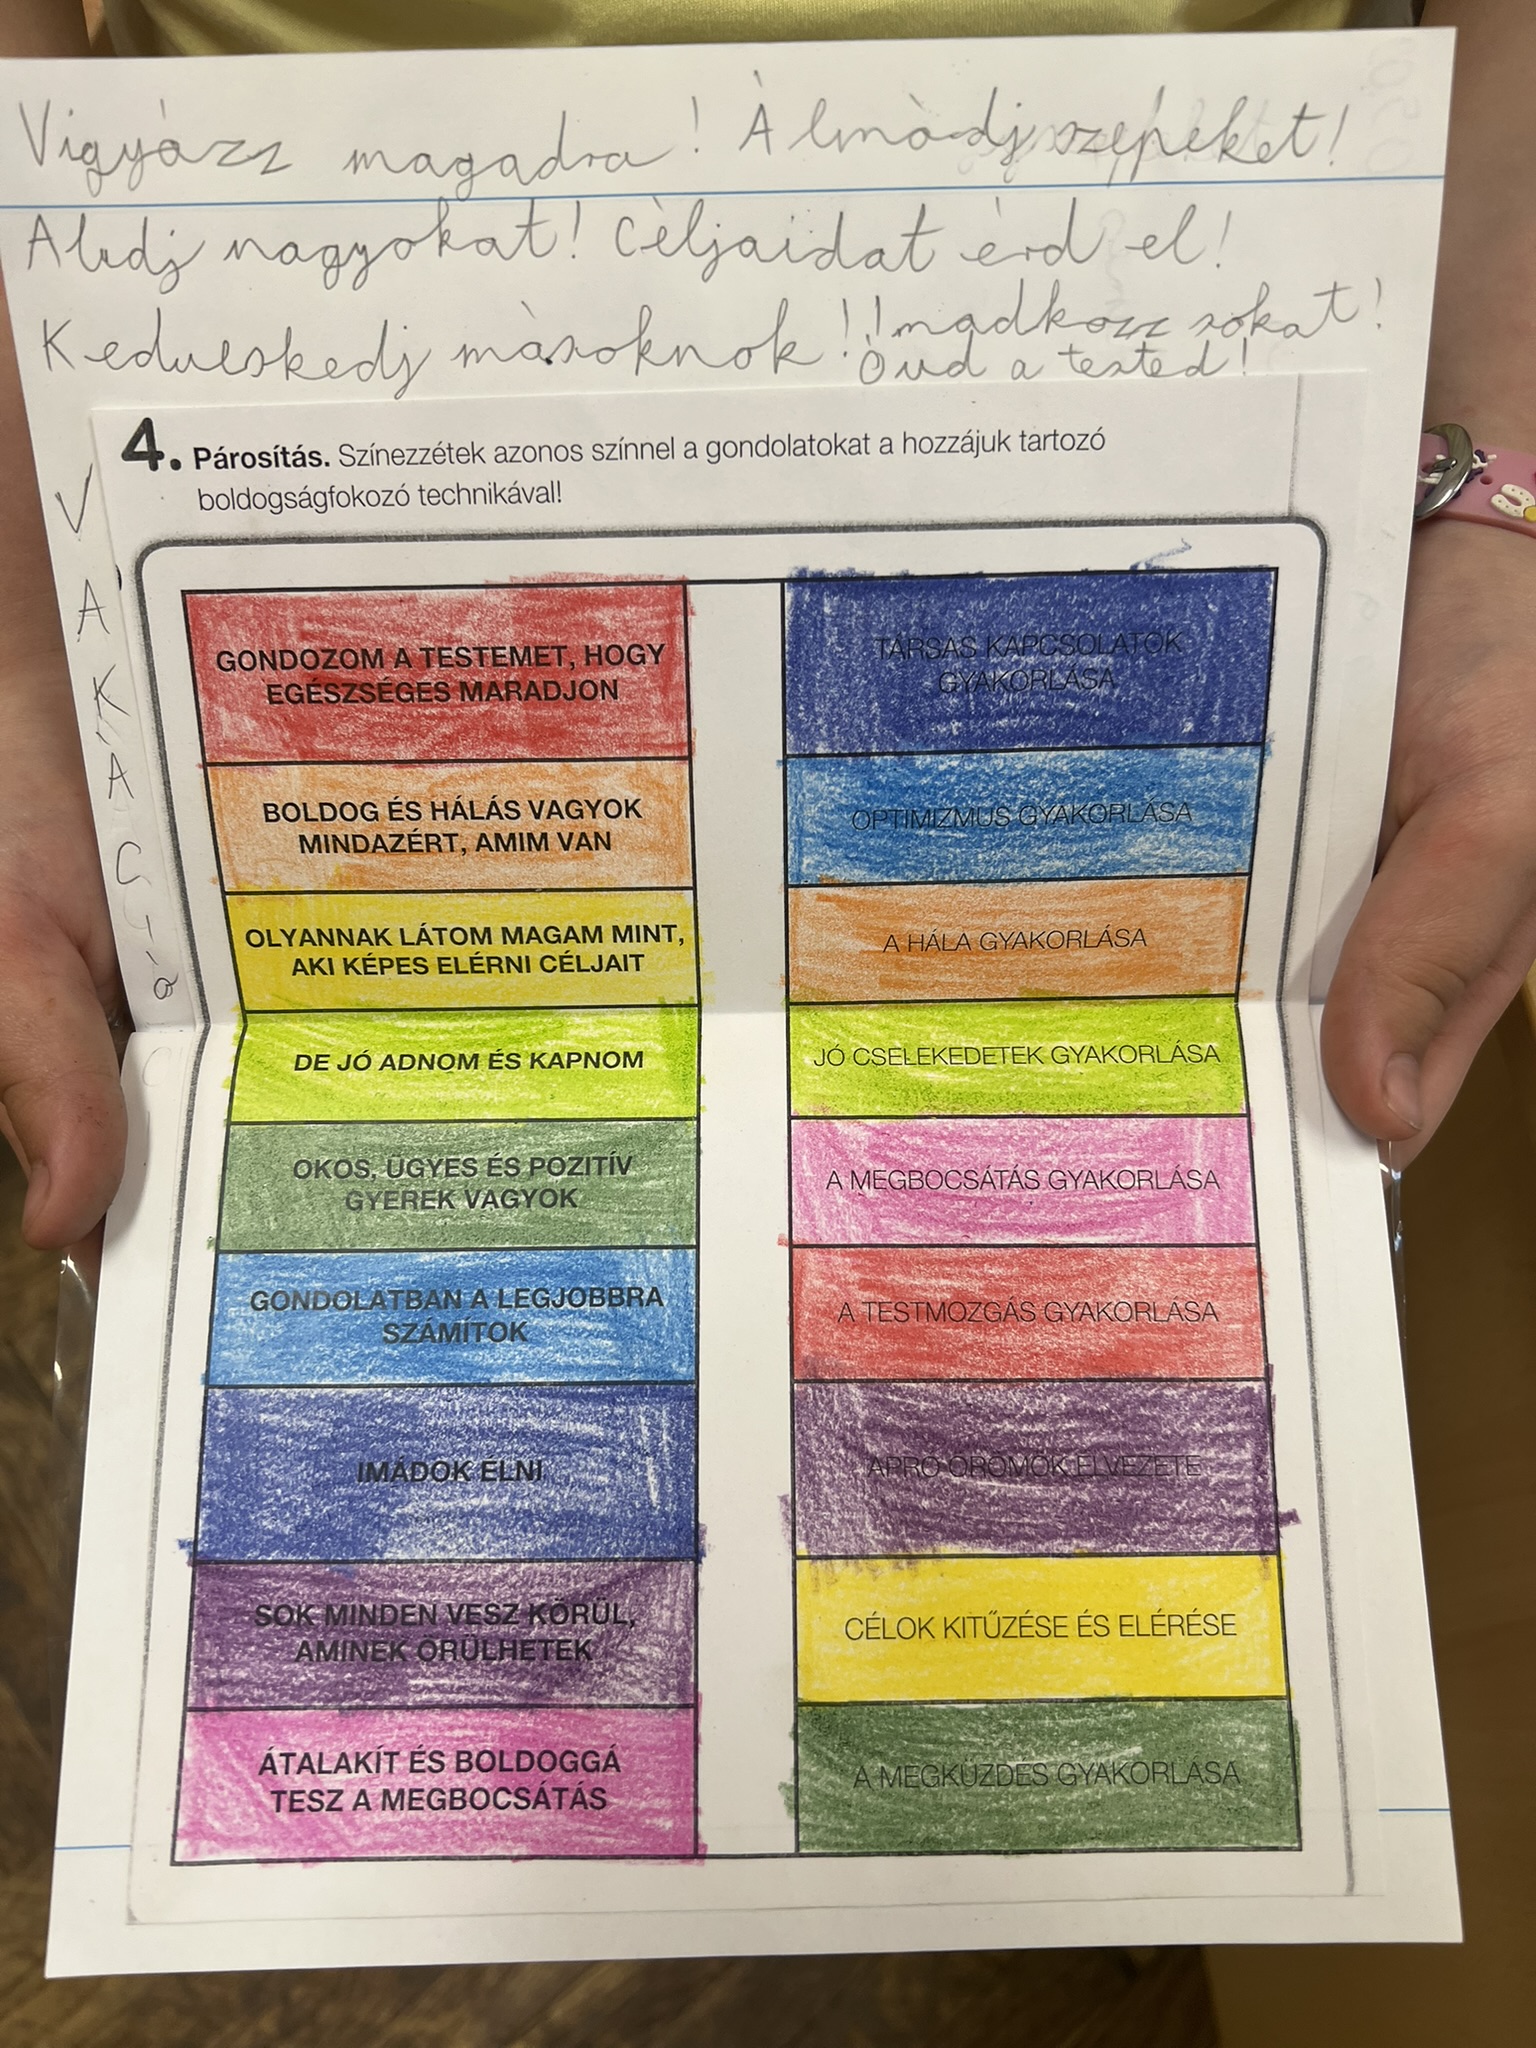 Vigyázz magadra! Álmodj szépeket!
Aludj nagyokat! Céljaidat érd el!
Kedveskedj másoknok! Imádkozz sokat!
Óvd a tested!
4. Párosítás. Színezzétek azonos színnel a gondolatokat a hozzájuk tartozó
boldogságfokozó technikával!
V
A
K
Á
C
I
Ó
GONDOZOM A TESTEMET, HOGY
EGÉSZSÉGES MARADJON
BOLDOG ÉS HÁLÁS VAGYOK
MINDAZÉRT, AMIM VAN
OLYANNAK LÁTOM MAGAM MINT,
AKI KÉPES ELÉRNI CÉLJAIT
DE JÓ ADNOM ÉS KAPNOM
OKOS, ÜGYES ÉS POZITÍV
GYEREK VAGYOK
GONDOLATBAN A LEGJOBBRA
SZÁMÍTOK
IMÁDOK ÉLNI
SOK MINDEN VESZ KÖRÜL,
AMINEK ÖRÜLHETEK
ÁTALAKÍT ÉS BOLDOGGÁ
TESZ A MEGBOCSÁTÁS
TÁRSAS KAPCSOLATOK
GYAKORLÁSA
OPTIMIZMUS GYAKORLÁSA
A HÁLA GYAKORLÁSA
JÓ CSELEKEDETEK GYAKORLÁSA
A MEGBOCSÁTÁS GYAKORLÁSA
A TESTMOZGÁS GYAKORLÁSA
APRÓ ÖRÖMÖK ÉLVEZETE
CÉLOK KITŰZÉSE ÉS ELÉRÉSE
A MEGKÜZDÉS GYAKORLÁSA